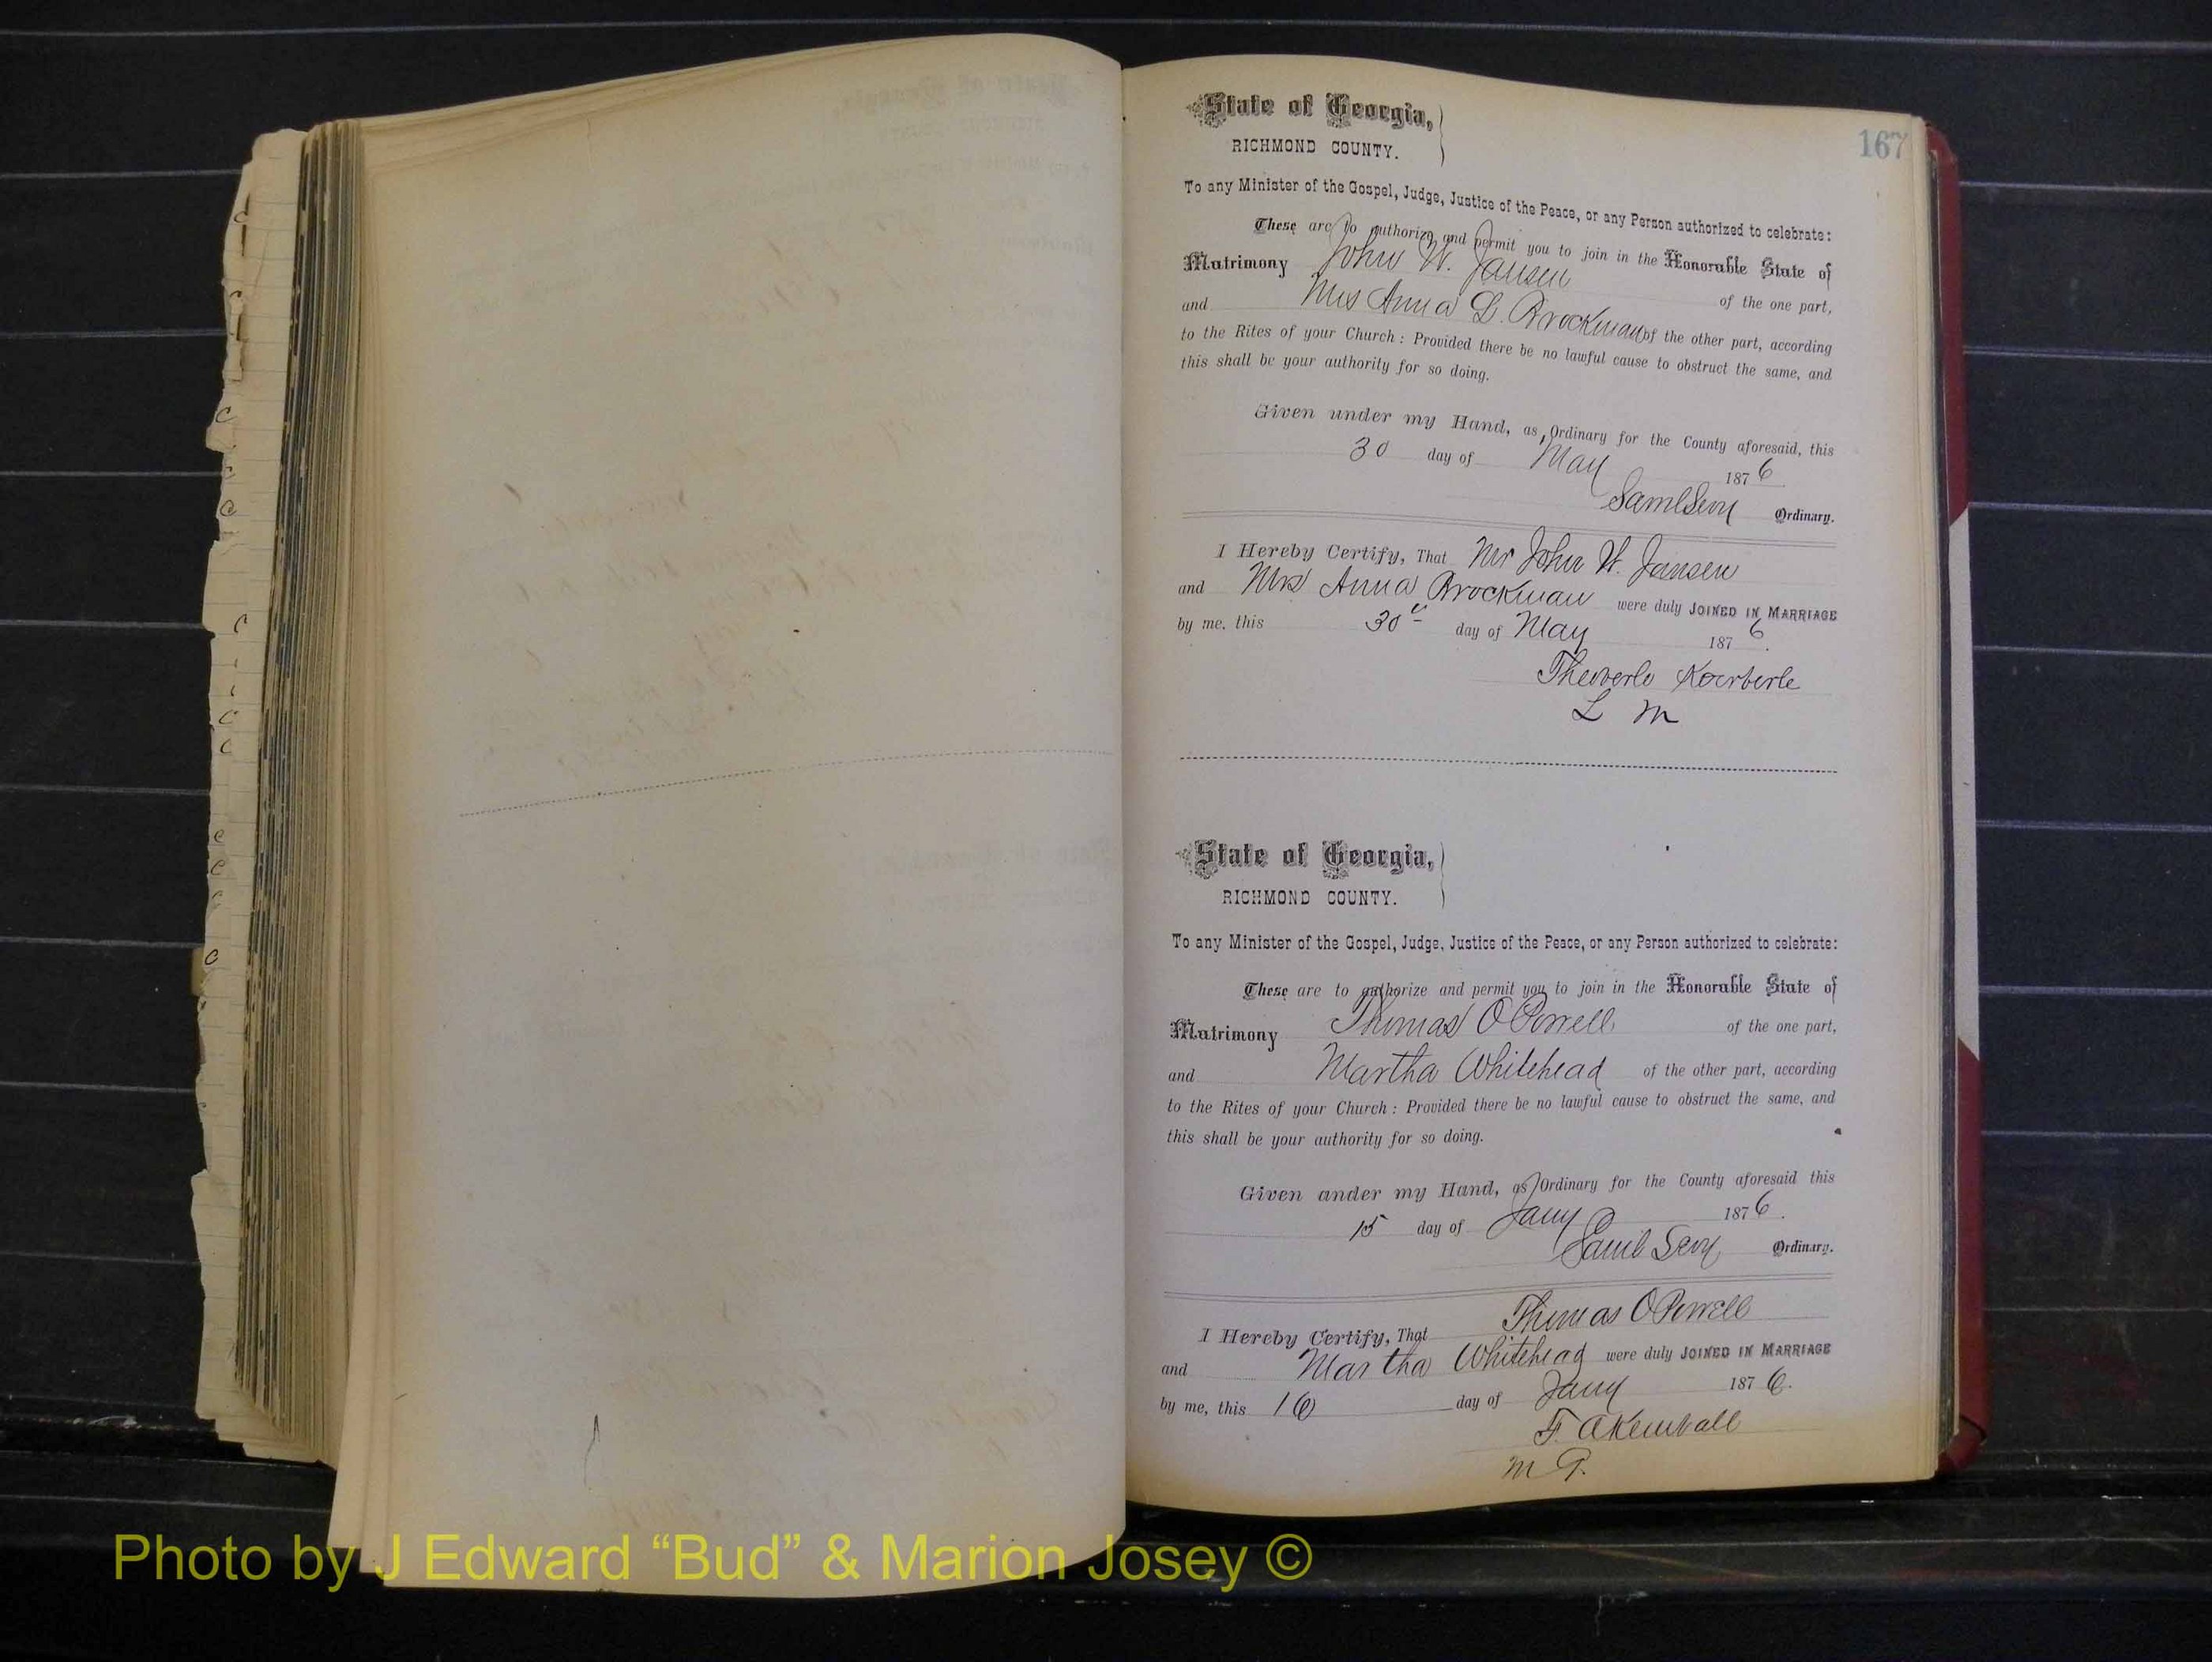 167
State of Georgia,
RICHMOND COUNTY.
To any Minister of the Gospel, Judge, Justice of the Peace, or any Person authorized to celebrate:
These are to authorize and permit you to join in the Honorable State of
Matrimony John W. Jansen of the one part,
and Mrs Anna L. Brockman of the other part, according
to the Rites of your Church: Provided there be no lawful cause to obstruct the same, and
this shall be your authority for so doing.
Given under my Hand, as Ordinary for the County aforesaid, this
30 day of May 1876
Saml Levy Ordinary.
I Hereby Certify, That Mr John W. Jansen
and Mrs Anna Brockman were duly JOINED IN MARRIAGE
by me, this 30 day of May 1876.
L M
State of Georgia,
RICHMOND COUNTY.
To any Minister of the Gospel, Judge, Justice of the Peace, or any Person authorized to celebrate:
These are to authorize and permit you to join in the Honorable State of
Matrimony Thomas O Powell of the one part,
and Martha Whitehead of the other part, according
to the Rites of your Church: Provided there be no lawful cause to obstruct the same, and
this shall be your authority for so doing.
Given under my Hand, as Ordinary for the County aforesaid this
15 day of Jany 1876.
Saml Levy Ordinary.
I Hereby Certify, That Thomas O Powell
and Martha Whitehead were duly JOINED IN MARRIAGE
by me, this 16 day of Jany 1876.
F. A Kimball
M G.
Photo by J Edward “Bud” & Marion Josey ©